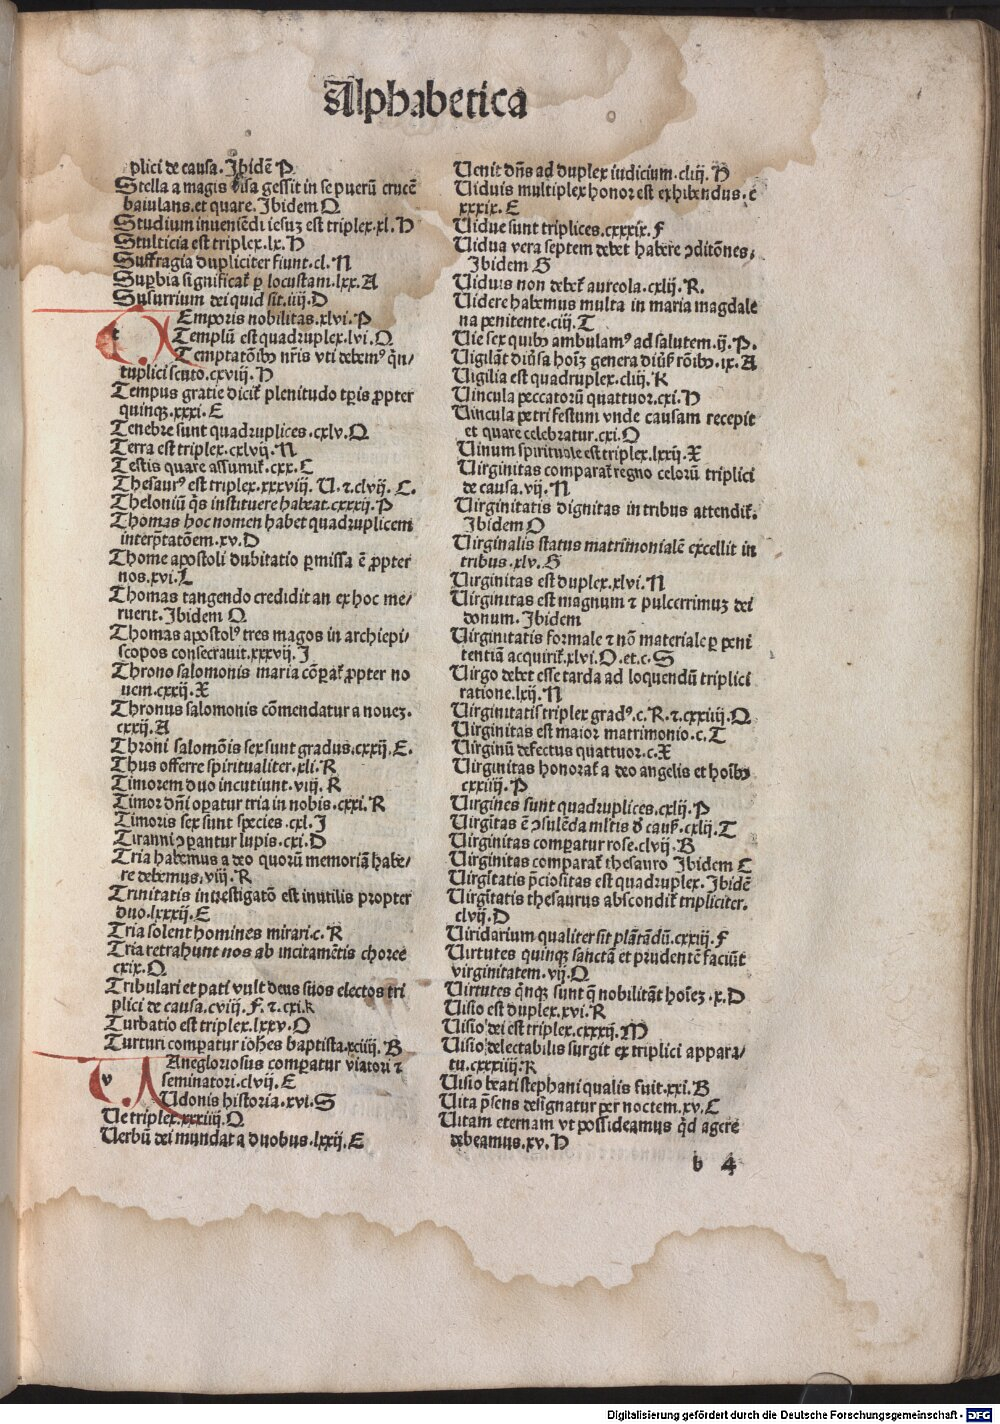 Alphabetica
plici de causa. Ibidē P
Stella a magis visa gessit in se puerū crucē
baiulans. et quare. Ibidem Q
Studium inueniēdi iesuz est triplex. xl. H
Stulticia est triplex. lx. H
Suffragia dupliciter fiunt. cl. N
Supbia significat p locustam. lxx. A
Susurrium dei quid sit. iiij. D
t Emporis nobilitas. xlvi. P
Templū est quadruplex. lvi. Q
Temptatōibꝰ nr̄is vti debemꝰ q̄n-
tuplici scuto. cxviij. H
Tempus gratie dicit plenitudo tp̄is ꝓpter
quinqꝫ. xxxi. E
Tenebre sunt quadruplices. cxlv. Q
Terra est triplex. cxlvij. N
Testis quare assumit. cxx. C
Thesaurꝰ est triplex. xxxviij. V. ⁊. clvij. C.
Theloniū q̄s instituere habeat. cxxxij. P
Thomas hoc nomen habet quadruplicem
interp̄tatōem. xv. D
Thome apostoli dubitatio pmissa ē ꝓpter
nos. xvi. L
Thomas tangendo credidit an ex hoc me/
ruerit. Ibidem Q
Thomas apostolꝰ tres magos in archiepi/
scopos consecrauit. xxxvij. I
Throno salomonis maria cōpat ꝓpter no
uem. cxxij. X
Thronus salomonis cōmendatur a nouez.
cxxij. A
Throni salomōis sex sunt gradus. cxxij. E.
Thus offerre spiritualiter. xli. R
Timorem duo incutiunt. viij. R
Timor dn̄i opatur tria in nobis. cxxi. R
Timoris sex sunt species. cxl. I
Tiranni ↄpantur lupis. cxi. D
Tria habemus a deo quorū memoriā habe/
re debemus. viij. R
Trinitatis inuestigatō est inutilis propter
duo. lxxxij. E
Tria solent homines mirari. c. R
Tria retrahunt nos ab incitamētis choree
cxix. Q
Tribulari et pati vult deus suos electos tri
plici de causa. cviij. F. ⁊. cxi. k
Turbatio est triplex. lxxv. O
Turturi compatur ioh̄es baptista. xciiij. B
v Anegloriosus compatur viatori ⁊
seminatori. clvij. E
Vdonis historia. xvi. S
Ve triplex. xxxiiij. Q
Verbū dei mundat a duobus. lxxij. E
Venit dn̄s ad duplex iudicium. cliij. H
Viduis multiplex honor est exhibendus. c
xxxix. E
Vidue sunt triplices. cxxxix. F
Vidua vera septem debet habere ↄditōnes,
Ibidem G
Viduis non debet aureola. cxlij. R.
Videre habemus multa in maria magdale
na penitente. ciij. T
Vie sex quibꝰ ambulamꝰ ad salutem. ij. P.
Vigilāt diu̓sa hoīz genera diu̓s rōibꝰ. ix. A
Vigilia est quadruplex. cliij. R
Vincula peccatorū quattuor. cxi. H
Vincula petri festum vnde causam recepit
et quare celebratur. cxi. O
Vinum spirituale est triplex. lxxij. X
Virginitas comparat regno celorū triplici
de causa. vij. N
Virginitatis dignitas in tribus attendit.
Ibidem O
Virginalis status matrimonialē excellit in
tribus. xlv. G
Virginitas est duplex. xlvi. N
Virginitas est magnum ⁊ pulcerrimuz dei
donum. Ibidem
Virginitatis formale ⁊ nō materiale p peni
tentiā acquirit. xlvi. O. et. c. S
Virgo debet esse tarda ad loquendū triplici
ratione. lxij. N
Virginitatis triplex gradꝰ. c. R. ⁊. cxxiiij. Q
Virginitas est maior matrimonio. c. T
Virginū defectus quattuor. c. X
Virginitas honorat a deo angelis et hoībꝰ
cxxiiij. P
Virgines sunt quadruplices. cxlij. P
Virgītas ē ↄsulēda ml̓tis d̓ cauẜ. cxlij. T
Virginitas compatur rose. clvij. B
Virginitas comparat thesauro Ibidem C
Virgītatis p̄ciositas est quadruplex. Ibidē
Virgītatis thesaurus abscondit tripliciter.
clvij. D
Viridarium qualiter sit plātādū. cxxiij. F
Virtutes quinqꝫ sanctā et prudentē faciūt
virginitatem. vij. Q
Virtutes q̄nqꝫ sunt q̄ nobilitāt hoīez. x. D
Visio est duplex. xvi. R
Visio dei est triplex. cxxxij. M
Visio delectabilis surgit ex triplici appara/
tu. cxxxiiij. R
Visio beati stephani qualis fuit. xxi. B
Vita p̄sens designatur per noctem. xv. C
Vitam eternam vt possideamus qd̓ agere
debeamus. xv. H
b 4
Digitalisierung gefördert durch die Deutsche Forschungsgemeinschaft - DFG